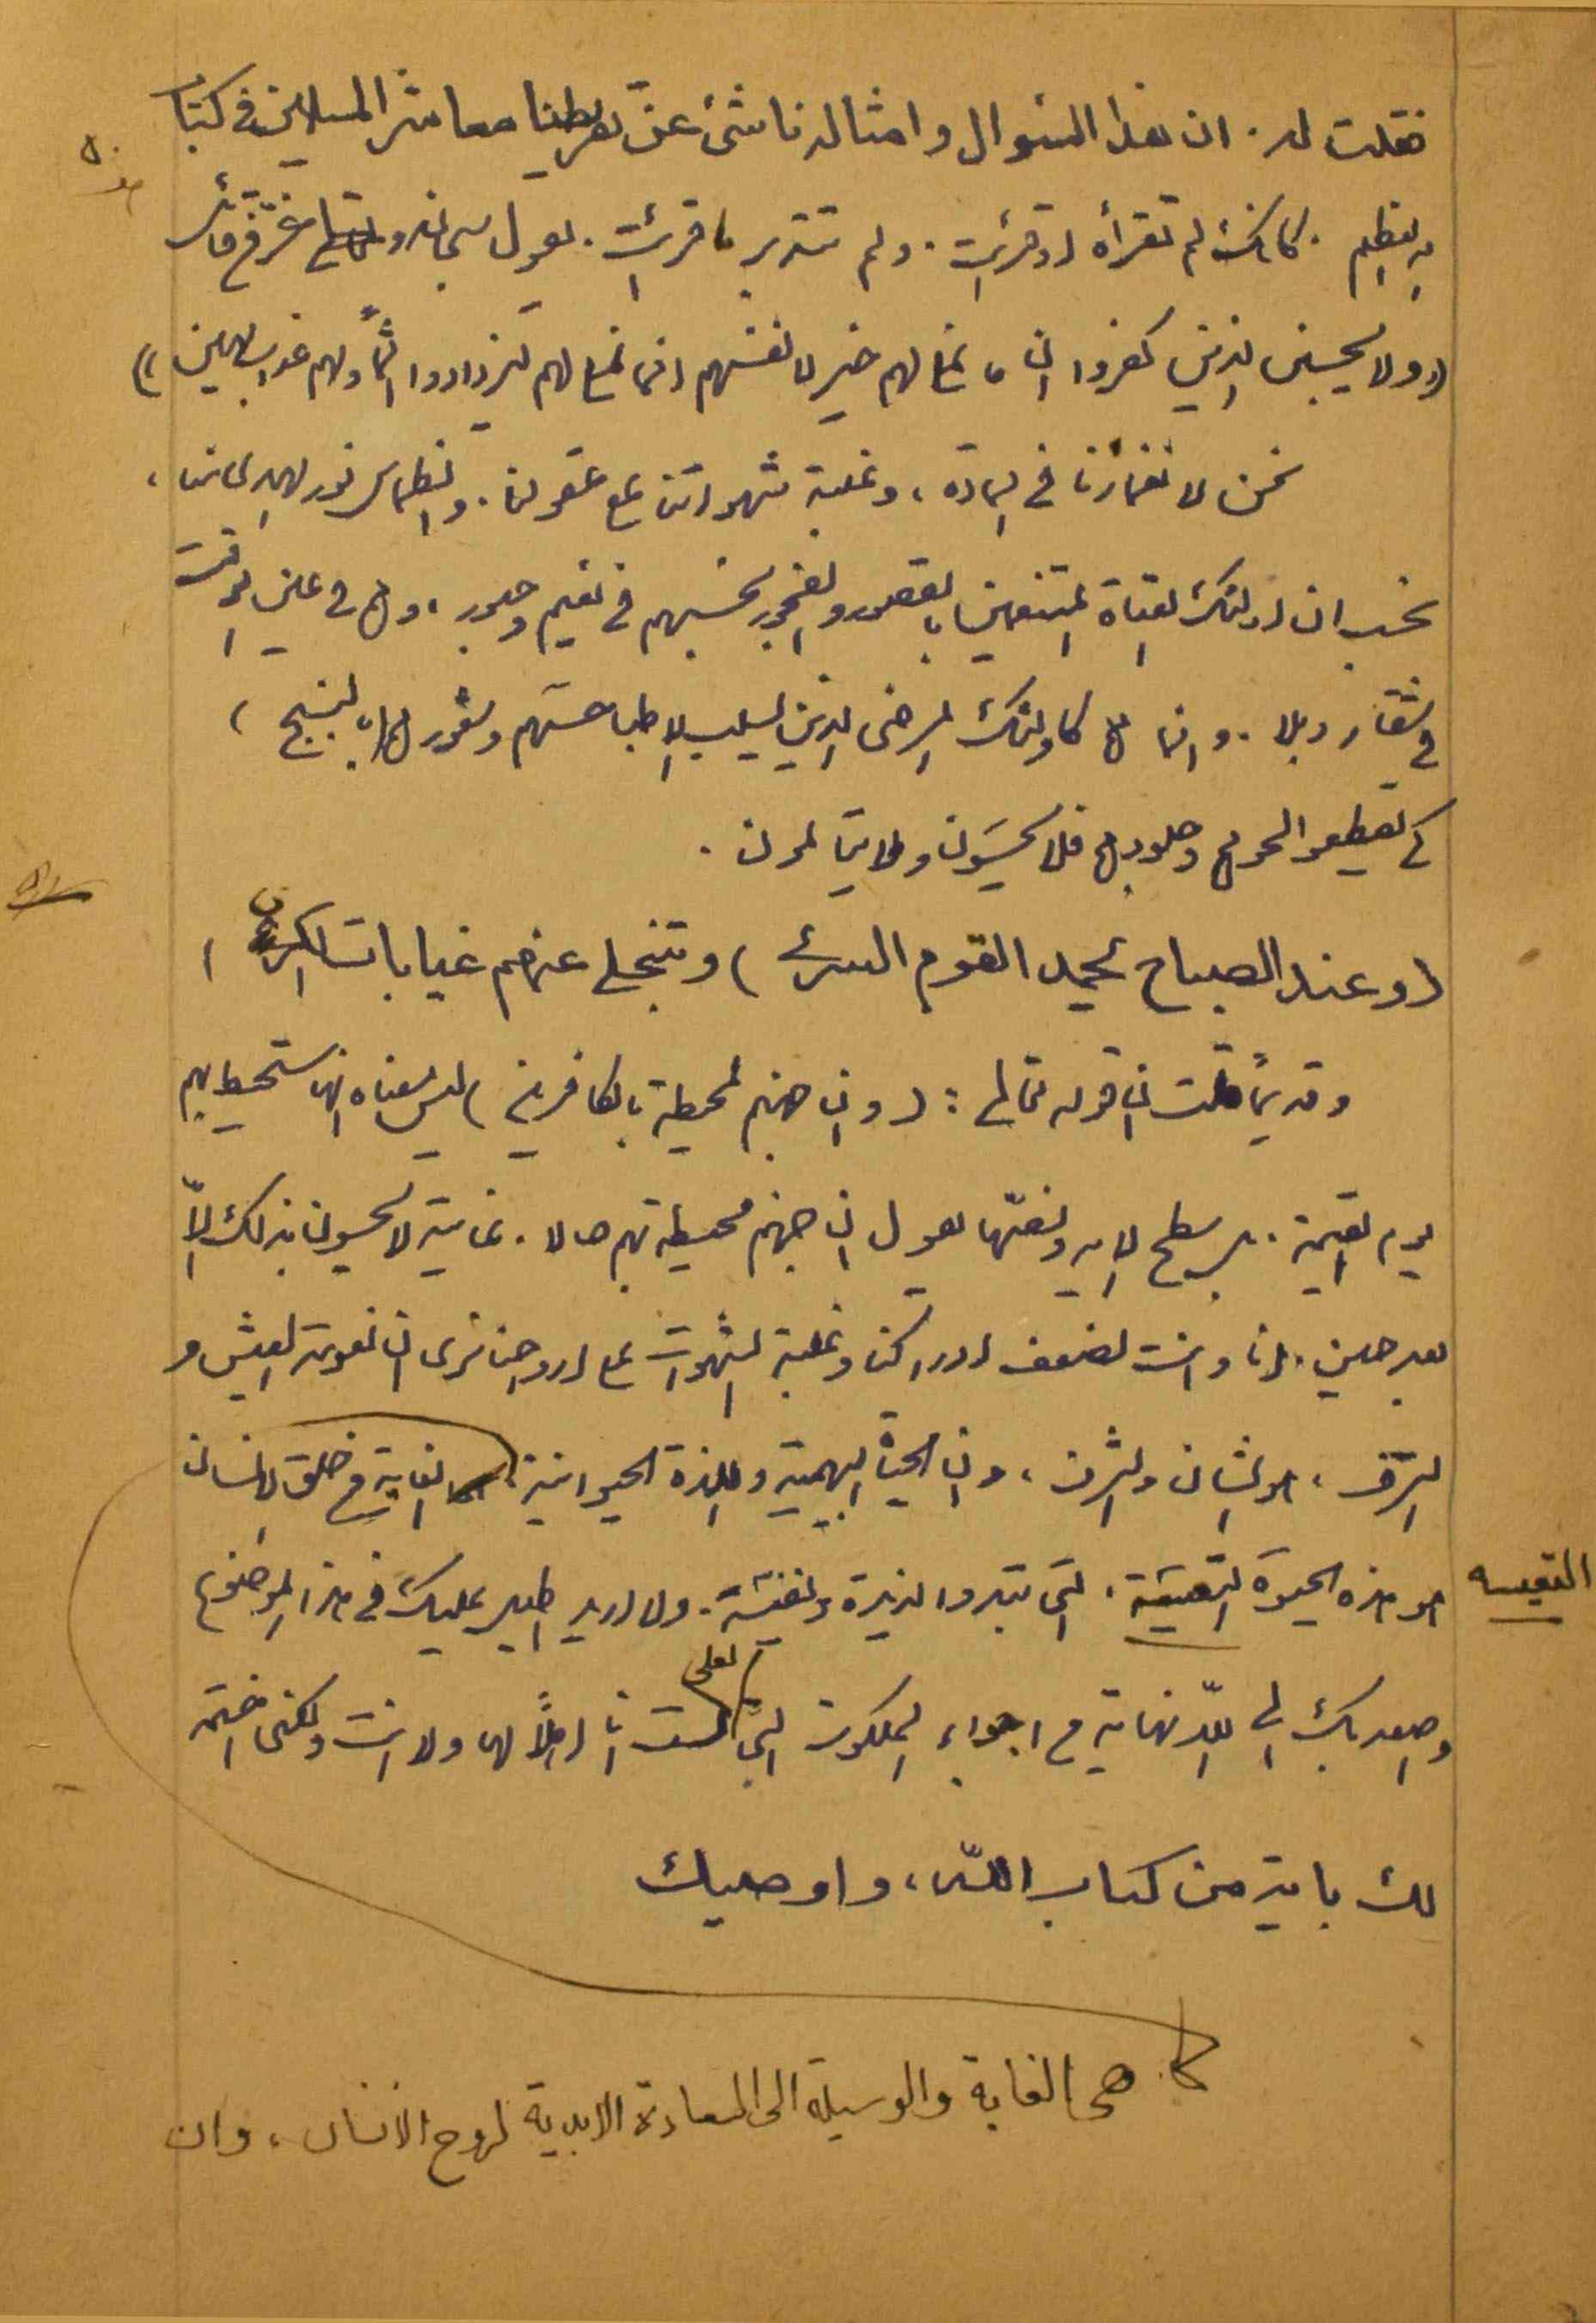 فقلت له. ان هذا السؤال وامثاله ناشئ عن تفريطنا معاشر المسلمين في كتاب
الله العظيم. كانك لم تقرأه او قرئت. ولم تتدبر ما قرئت. يقول سبحانه و عز من قائل
((ولا يحسبن الذين كفروا ان ما نملي لهم خير لانفسهم انما نملي لهم ليزدادوا اثماً ولهم عذاب مهين))
نحن لانغمارنا في المادة، وغلبة شهواتنا على عقولنا. وانطماس نور الهدى منا،
نحسب ان اولئك العتاة المتنعمين بالقصور والفجور نحسبهم في نعيم وحبور، وهم في عين الوقت
في شقاء وبلاء. وانما هم كاولئك المرضى الذين يسلب الاطبا حسهم وشعورهم بالبنج)
كي يقطعوا لحومهم وجلودهم فلا يحسون ولا يتالمون.
(وعند الصباح يحمد القوم السرى) وتنجلي عنهم غيابات الكرى
وقديماً قلت ان قوله تعالى: (وان جهنم لمحيطة بالكافرين) ليس معناه انها ستحيط بهم
يوم القيمة. بل سطح الايه ونصها يقول ان جهنم محيطة بهم حالا. غايته لا يحسون بذلك الاّ
بعد حين. انا وانت لضعف ادراكنا وغلبة الشهوات على ارواحنا نرى ان نعومة العيش و
الترف، هو الشان والشرف، وان الحياة البهيمية واللذة الحيوانية الغاية من خلق الانسان
هو هذه الحيوة التعيسة. التي تبدوا لذيذة ونفيسة. ولا اريد اطيل عليك في هذا الموضوع
التعيسه
واصعد بك الى اللانهاية من اجواء الملكوت التي لعلي لست انا اهلاً لها ولا انت ولكني اختم
لك باية من كتاب الله، واوصيك
هي الغاية والوسيلة الى السعادة الابدية لروح الانسان، وان